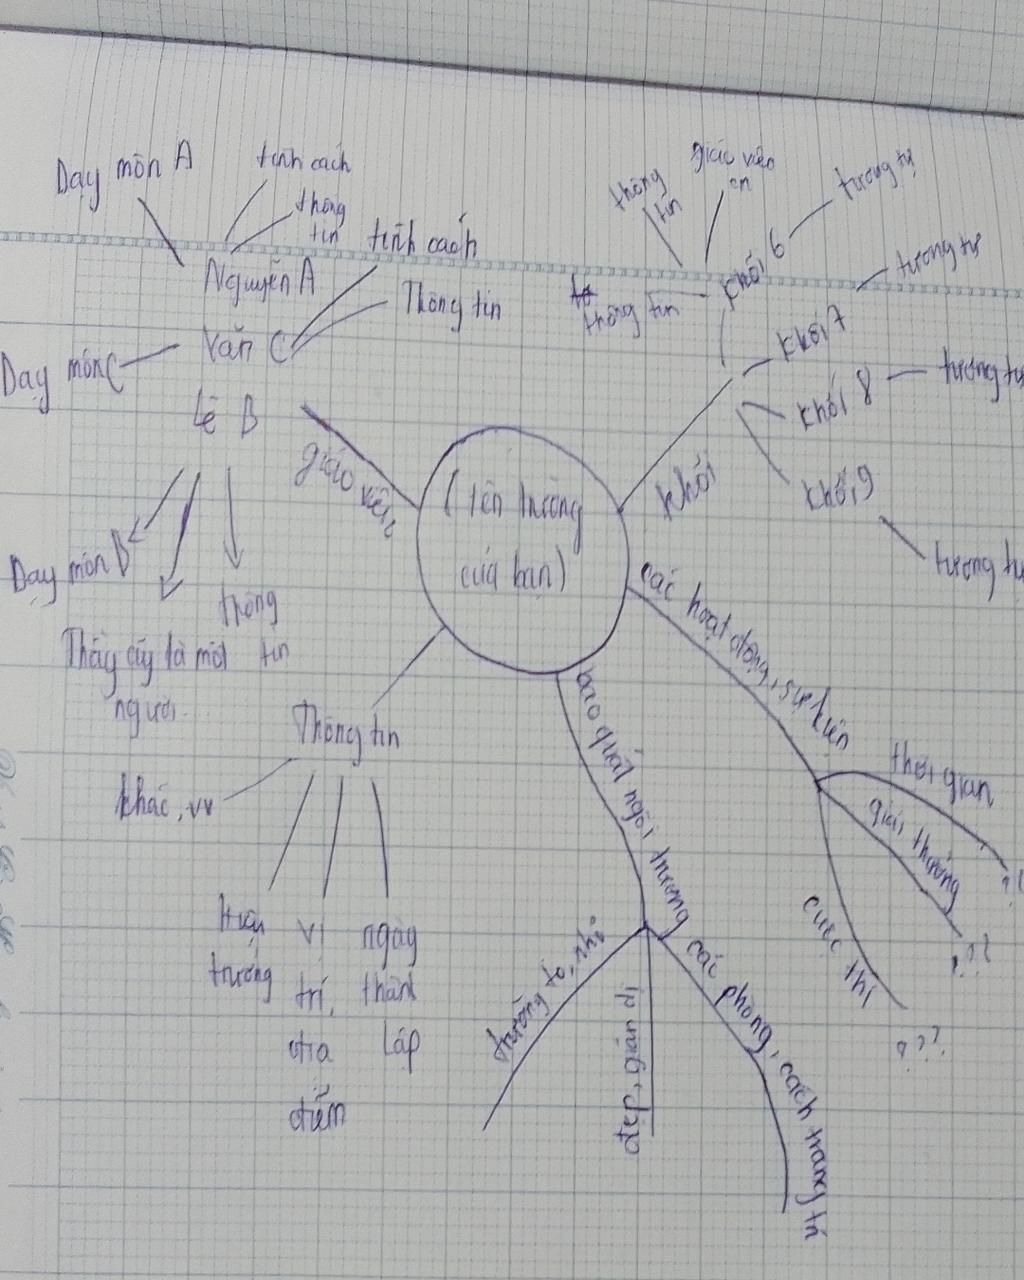 Dạy môn A
tính cách
thông
tin
Nguyễn A
tính cách
Thông tin
Văn C
Dạy môn C
Lê B
giáo viên
Dạy môn B
Thầy ấy là một
người..
thông
tin
thông
tin
giáo viên
cn
tương tự
khối 6
thông tin
tương tự
khối 7
khối 8
tương tự
khối 9
tương tự
khối
(tên trường
của bạn)
các hoạt động, sự kiện
thời gian
giải thưởng
cuộc thi
???
???
bao quát ngôi trường
trường to, nhỏ
đẹp, giản dị
các phòng, cách trang trí
Thông tin
khác, vv
hiệu
trưởng
vị
trí,
địa
điểm
ngày
thành
lập